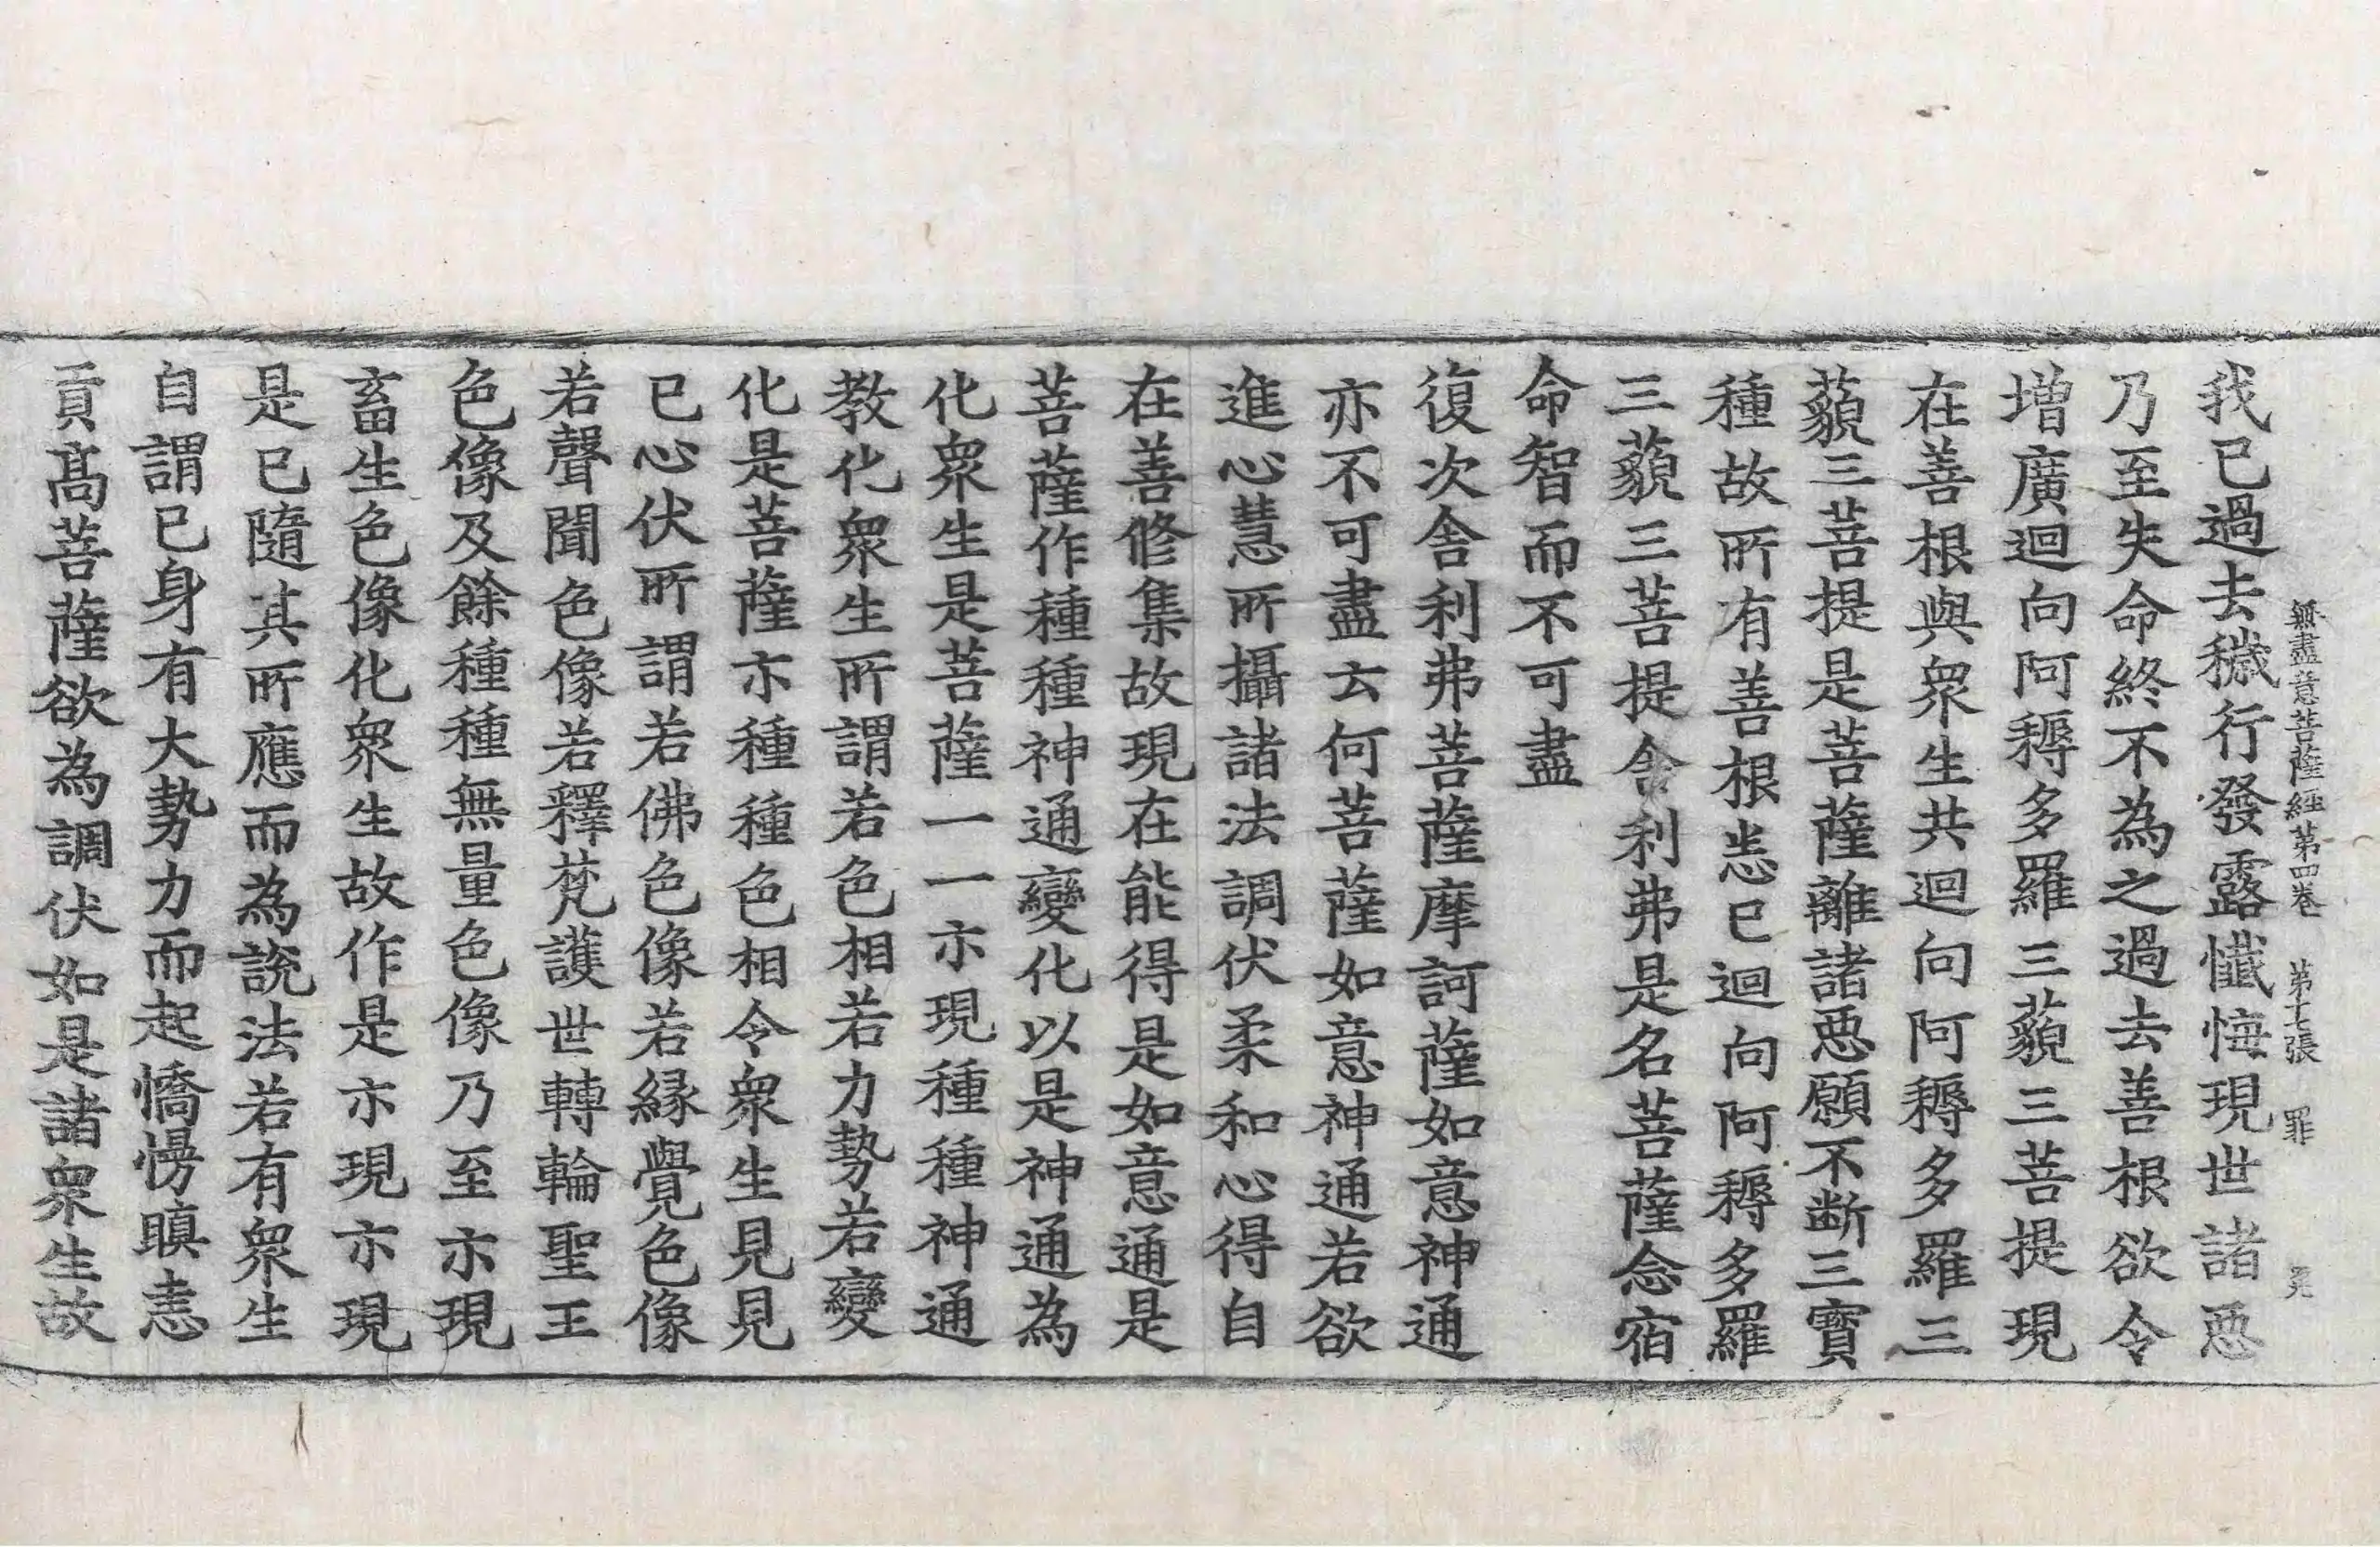 無盡意菩薩經第四卷 第十七張 罪
我已過去穢行發露懺悔現世諸惡
乃至失命終不為之過去善根欲令
增廣迴向阿耨多羅三藐三菩提現
在善根與衆生共迴向阿耨多羅三
藐三菩提是菩薩離諸惡願不斷三寶
種故所有善根悉已迴向阿耨多羅
三藐三菩提舍利弗是名菩薩念宿
命智而不可盡
復次舍利弗菩薩摩訶薩如意神通
亦不可盡云何菩薩如意神通若欲
進心慧所攝諸法調伏柔和心得自
在善修集故現在能得是如意通是
菩薩作種種神通變化以是神通為
化衆生是菩薩一一亦現種種神通
教化衆生所謂若色相若力勢若變
化是菩薩亦種種色相令衆生見見
已心伏所謂若佛色像若緣覺色像
若聲聞色像若釋梵護世轉輪聖王
色像及餘種種無量色像乃至亦現
畜生色像化衆生故作是亦現亦現
是已隨其所應而為說法若有衆生
自謂已身有大勢力而起憍慢瞋恚
貢高菩薩欲為調伏如是諸衆生故